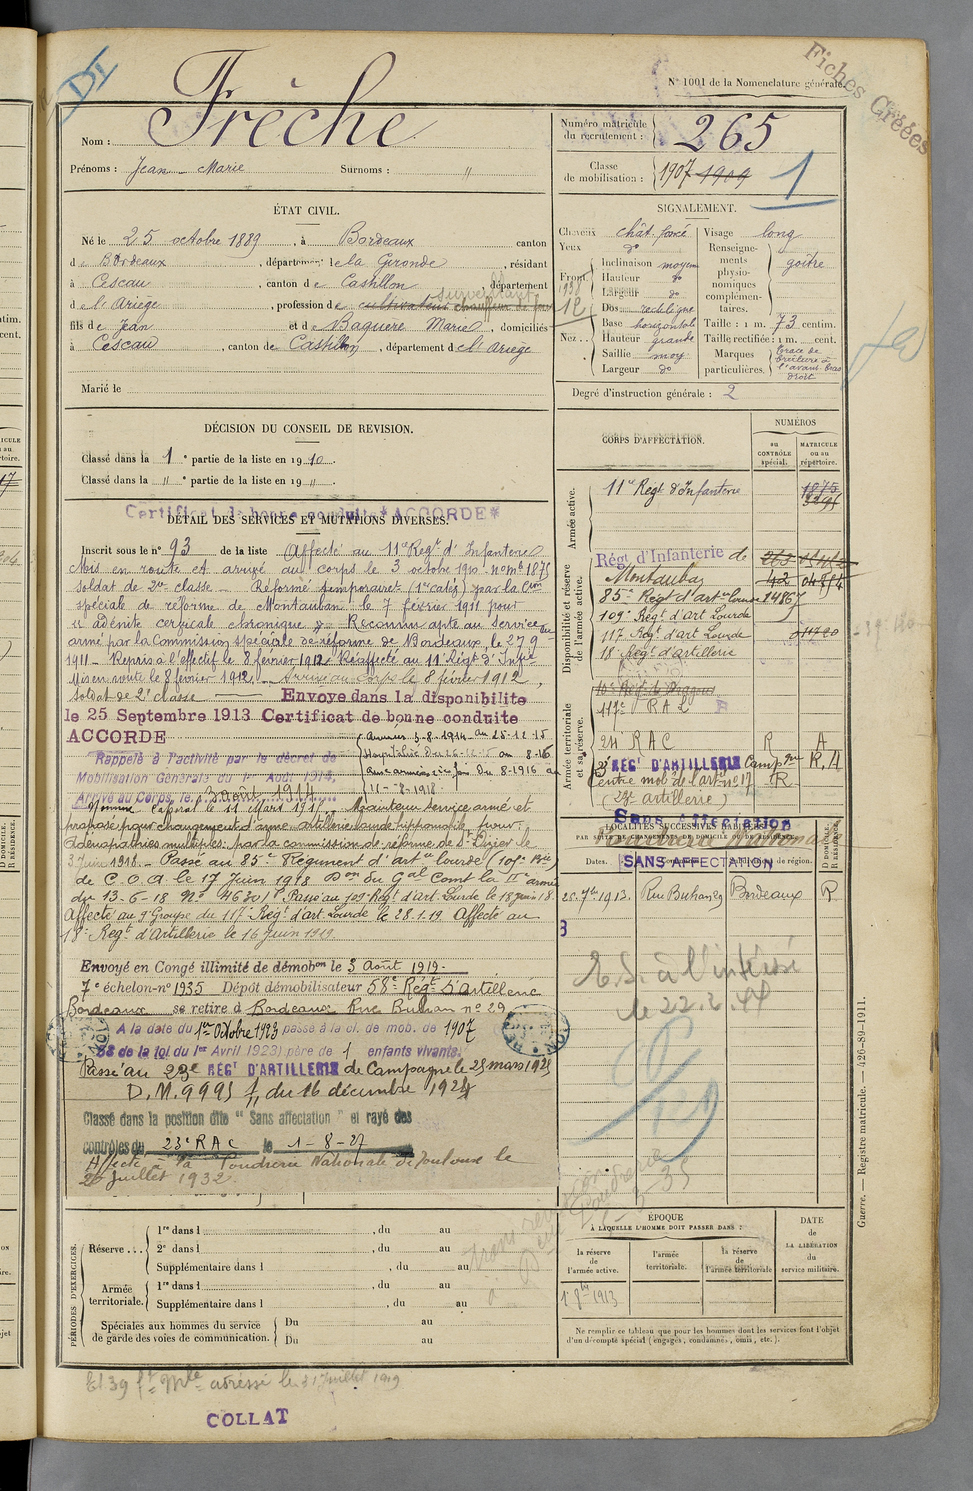 Fiches Créées
N° 1001 de la Nomenclature générale.
Nom : Frèche
Prénoms : Jean Marie Surnoms : "
Numéro matricule du recrutement : 265
Classe de mobilisation : 1907 1909
1
ÉTAT CIVIL.
Né le 25 octobre 1889, à Bordeaux canton
de Bordeaux, département de la Gironde, résidant
à Cescau, canton de Castillon département
de l'Ariège, profession de cultivateur chauffeur de
surveillant
fils de Jean et de Baquère Marie, domiciliés
à Cescau, canton de Castillon, département de l'Ariège
Marié le
SIGNALEMENT.
Cheveux chât. foncé
Yeux do
Front Inclinaison moyen
Hauteur do
Largeur do
Nez Dos rectiligne
Base horizontale
Hauteur grande
Saillie moy
Largeur do
Visage long
Renseignements physionomiques complémentaires. goître
Taille : 1 m. 73 centim.
Taille rectifiée : 1 m. cent.
Marques particulières. trace de brûlure à l'avant-bras droit
Degré d'instruction générale : 2
DÉCISION DU CONSEIL DE REVISION.
Classé dans la 1e partie de la liste en 1910.
Classé dans la " e partie de la liste en 19 " .
Certificat de bonne conduite *ACCORDE*
DÉTAIL DES SERVICES ET MUTATIONS DIVERSES.
Inscrit sous le n° 93 de la liste Affecté au 11e Régt d'Infanterie
Mis en route et arrivé au corps le 3 octobre 1910. no mle 1875
soldat de 2me classe. Réformé temporaire (1re catég) par la Con
spéciale de réforme de Montauban le 7 février 1911 pour
"adénite cervicale chronique". Reconnu apte au service
armé par la Commission spéciale de réforme de Bordeaux, le 27
1911. Repris à l'effectif le 8 février 1912 Réaffecté au 11 Régt d'Infie
Mis en route le 8 février 1912. Arrivé au Corps le 8 février 1912,
soldat de 2e classe Envoye dans la disponibilite
le 25 Septembre 1913 Certificat de bonne conduite
ACCORDE
Rappelé à l'activité par le décret de
Mobilisation Générale du 1er Août 1914,
Arrivé au Corps, le 3 août 1914
Aux armées 5-8-1914 au 25-12-15
Nommé caporal le 11 Mart 1915. Maintenu service armé et
proposé pour changement d'arme artillerie lourde hippomobile pour
adénopathies multiples par la commission de réforme de St Dizier le
3 Juin 1918. Passé au 85e Régiment d'artie lourde (107e Bie)
de C.O.A. le 17 Juin 1918 Don du Gal Comt la IIe armée
du 13-6-18 No 4630/P. Passé au 109e Régt d'art. Lourde le 18 Juin 18.
Affecté au 9e Groupe du 117e Régt d'art Lourde le 28.1.19 Affecté au
18e Régt d'Artillerie le 16 Juin 1919.
Envoyé en Congé illimité de démobon le 3 Août 1919.
7e échelon-n° 1935 Dépôt démobilisateur 58e Régt d'Artillerie
Bordeaux se retire à Bordeaux Rue Buhan no 29
A la date du 1er Octobre 1923 passe à la cl. de mob. de 1907
58 de la loi du 1er Avril 1923) père de 1 enfants vivants.
Passé au 23e REGT D'ARTILLERIE de Campagne le 25 mars 1925
D.M. 9995 1/11 du 16 décembre 1924
Classé dans la position dite "Sans affectation" et rayé des
contrôles du 23e RAC le 1-8-27
Affecté à la Poudrerie Nationale de Toulouse le
20 Juillet 1932.
CORPS D'AFFECTATION.
NUMÉROS
au CONTRÔLE spécial.
MATRICULE ou au répertoire.
Armée active.
11e Régt d'Infanterie 1875
Disponibilité et réserve de l'armée active.
Régt d'Infanterie de
Montauban
85e Régt d'artie lourde 14867
109e Régt d'art Lourde
117 Régt d'art Lourde 01720
18e Régt d'artillerie
Armée territoriale et sa réserve.
10e Régt de Dragons
117e RAL
24 RAC R A
23 REGT D'ARTILLERIE Campgne R, A
Centre mob de l'artie no 17 R
(23e artillerie)
Sans Affectation
Poudrerie Nationale
LOCALITÉS SUCCESSIVES HABITÉES
PAR SUITE DE CHANGEMENTS DE DOMICILE OU DE RÉSIDENCE.
Dates.
Subdivisions de région.
D DOMICILE. R RÉSIDENCE.
SANS AFFECTATION
25. 7bre 1913. Rue Buhan 29 Bordeaux R
R.S. à l'intéressé
le 22.2.44
PÉRIODES D'EXERCICES.
Réserve ... 1re dans l , du au
2e dans l , du au
Supplémentaire dans l , du au
Armée territoriale. 1re dans l , du au
Supplémentaire dans l , du au
Spéciales aux hommes du service de garde des voies de communication. Du au
Du au
ÉPOQUE
À LAQUELLE L'HOMME DOIT PASSER DANS :
la réserve de l'armée active.
l'armée territoriale.
la réserve de l'armée territoriale
DATE de LA LIBÉRATION du service militaire.
1er 8bre 1913
Ne remplir ce tableau que pour les hommes dont les services font l'objet
d'un décompte spécial (engagés, condamnés, omis, etc.).
Guerre. — Registre matricule. — 426-89-1911.
adressé le 31 Juillet 1919
COLLAT